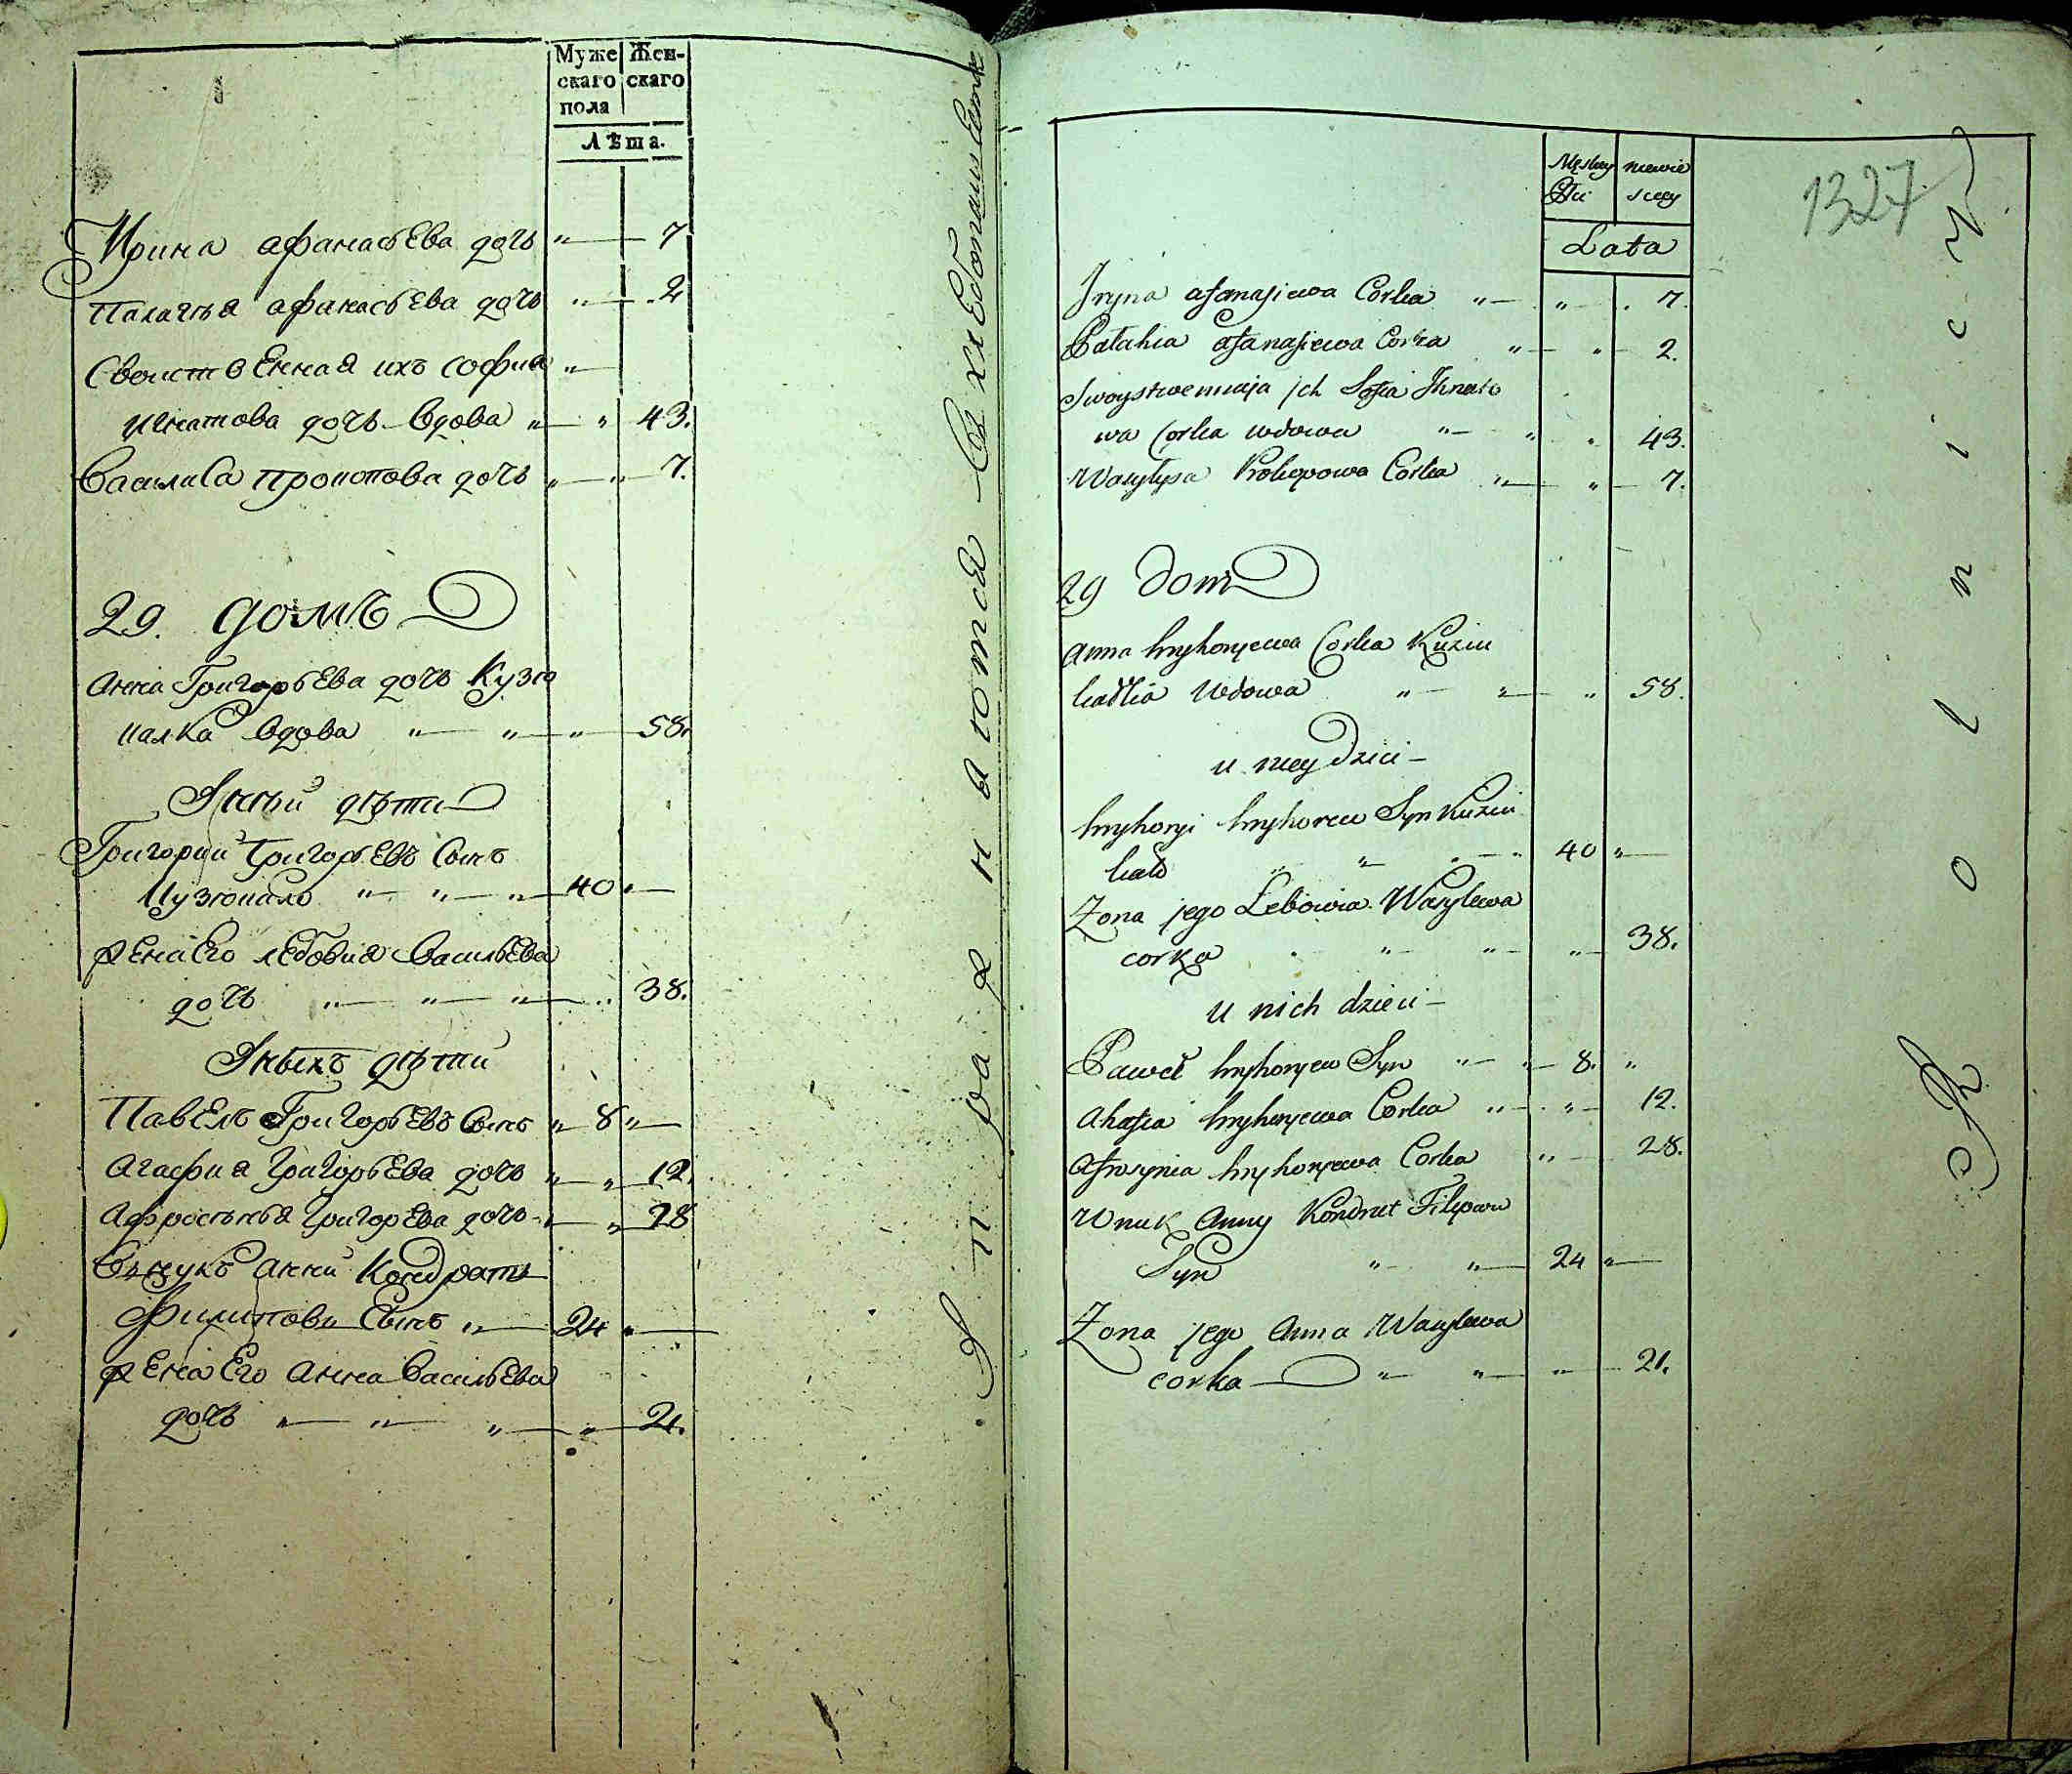 Муже Жен-
скаго скаго
пола
Лѣта.
Ирина афанасьева дочь " 7
Палагѣя афанасьева дочь " 2
Своиственная ихъ софия "
игнатова дочь вдова " " 43.
Василиса прокопова дочь " " 7.
29. домъ
Анна Григорьева дочь Кузю
калка вдова " " " 58.
Унѣй дѣти
Григории Григорьевъ сынъ
Кузюкало " " " 40 "
жена Его лебовия Васильева
дочь " " " " 38.
Унихъ дѣти
Павелъ Григорьевъ сынъ " 8 "
Агафия Григорьева дочь " " 12.
Афросинья Григорьева дочь " " 28
Внукъ анни Кондратъ
Филиповъ сынъ " 24 "
жена Его анна Васильева
дочь " " " " 21.
Упражняются в хлебопашестве
Męskey niewie
Płci sciey
Lata
1327
Iryna afanasiewa Corka " " 7.
Pałahia afanasiewa Corka " " 2.
Swoystwennaja ich Sofia Ihnato
wa Corka wdowa " " " 43.
Wasylysa Prokopowa Corka " " 7.
29 Dom
Anna hryhoryewa Corka Kuziu
kałka Wdowa " " " 58.
u niey Dzieci
hryhoryi hryhorew Syn Kuziu
kało " " 40 "
Zona jego Lebowia Wasylewa
corka " " " 38.
u nich dzieci
Paweł hryhoryew Syn " " 8. "
ahafia hryhoryewa Corka " " 12.
afrosynia hryhoryewa Corka " 28.
Wnuk Anny Kondrat Filipow
Syn " " 24 "
Zona jego Anna Wasylewa
corka " " " 21.
Rolnicy